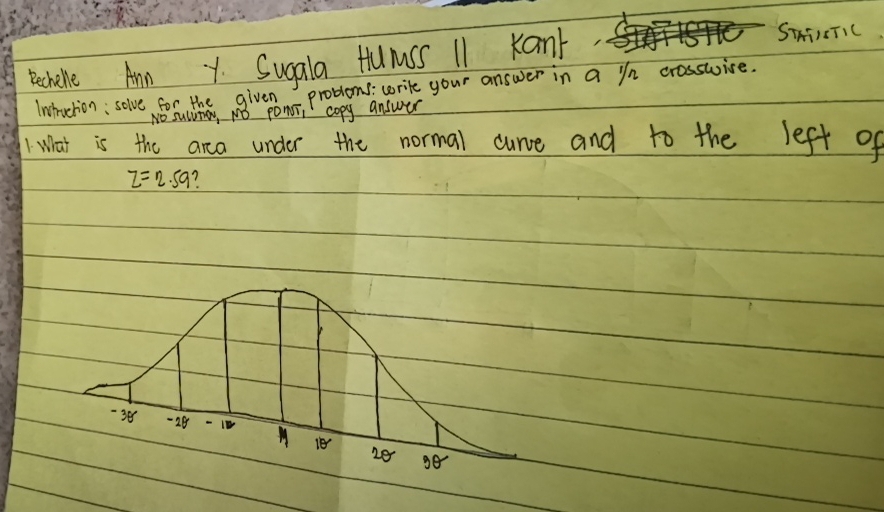 Rechelle Ann Y. Sugala HUMSS 11 Kant STATISTIC STATISTIC
Instruction: solve for the given problems: write your answer in a 1/2 crosswise.
NO SULUTION, NO POINT, copy answer
1. What is the area under the normal curve and to the left of
Z=2.59?
-3σ -2σ -1σ M 1σ 2σ 3σ